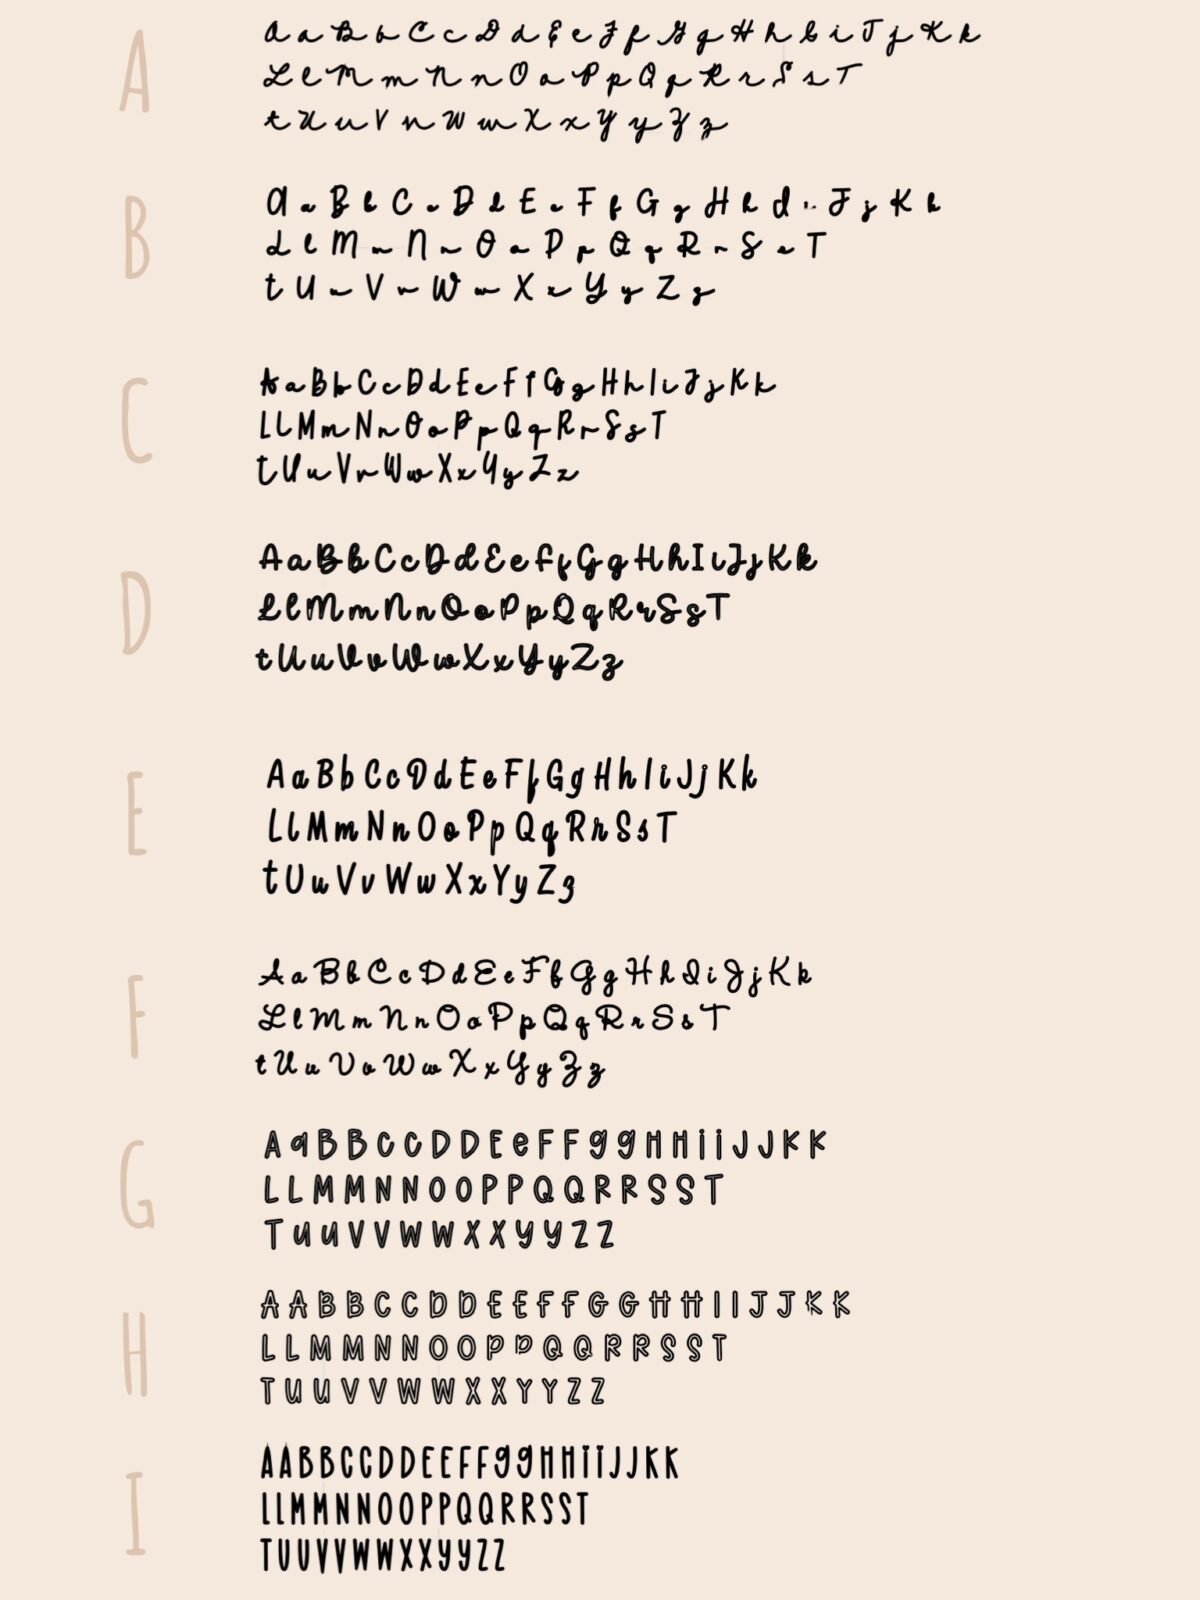 A
A a B b C c D d E e F f G g H h I i J j K k
L l M m N n O o P p Q q R r S s T
t U u V v W w X x Y y Z z
B
A a B b C c D d E e F f G g H h I i J j K k
L l M m N n O o P p Q q R r S s T
t U u V v W w X x Y y Z z
C
A a B b C c D d E e F f G g H h I i J j K k
L l M m N n O o P p Q q R r S s T
t U u V v W w X x Y y Z z
D
A a B b C c D d E e F f G g H h I i J j K k
L l M m N n O o P p Q q R r S s T
t U u V v W w X x Y y Z z
E
A a B b C c D d E e F f G g H h I i J j K k
L l M m N n O o P p Q q R r S s T
t U u V v W w X x Y y Z z
F
A a B b C c D d E e F f G g H h I i J j K k
L l M m N n O o P p Q q R r S s T
t U u V v W w X x Y y Z z
G
A a B B C C D D E e F F g g H H i i J J K K
L L M M N N O O P P Q Q R R S S T
T u u V V W W X X y y Z Z
H
A A B B C C D D E E F F G G H H I I J J K K
L L M M N N O O P P Q Q R R S S T
T U U V V W W X X Y Y Z Z
I
A A B B C C D D E E F F g g H H I I J J K K
L L M M N N O O P P Q Q R R S S T
T U U V V W W X X y y Z Z